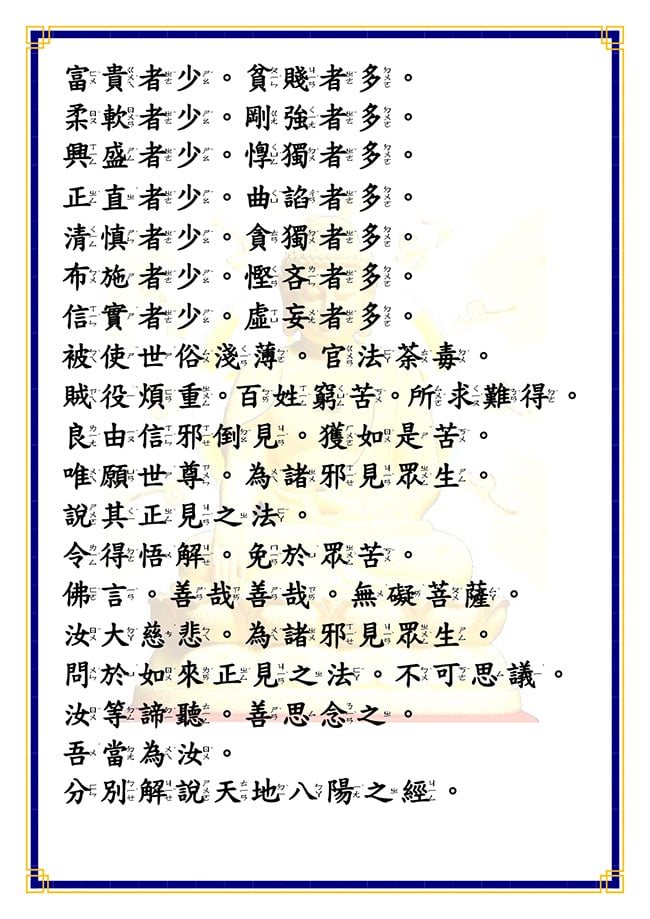 富貴者少。貧賤者多。
柔軟者少。剛強者多。
興盛者少。惸獨者多。
正直者少。曲諂者多。
清慎者少。貪獨者多。
布施者少。慳吝者多。
信實者少。虛妄者多。
被使世俗淺薄。官法荼毒。
賊役煩重。百姓窮苦。所求難得。
良由信邪倒見。獲如是苦。
唯願世尊。為諸邪見眾生。
說其正見之法。
令得悟解。免於眾苦。
佛言。善哉善哉。無礙菩薩。
汝大慈悲。為諸邪見眾生。
問於如來正見之法。不可思議。
汝等諦聽。善思念之。
吾當為汝。
分別解說天地八陽之經。